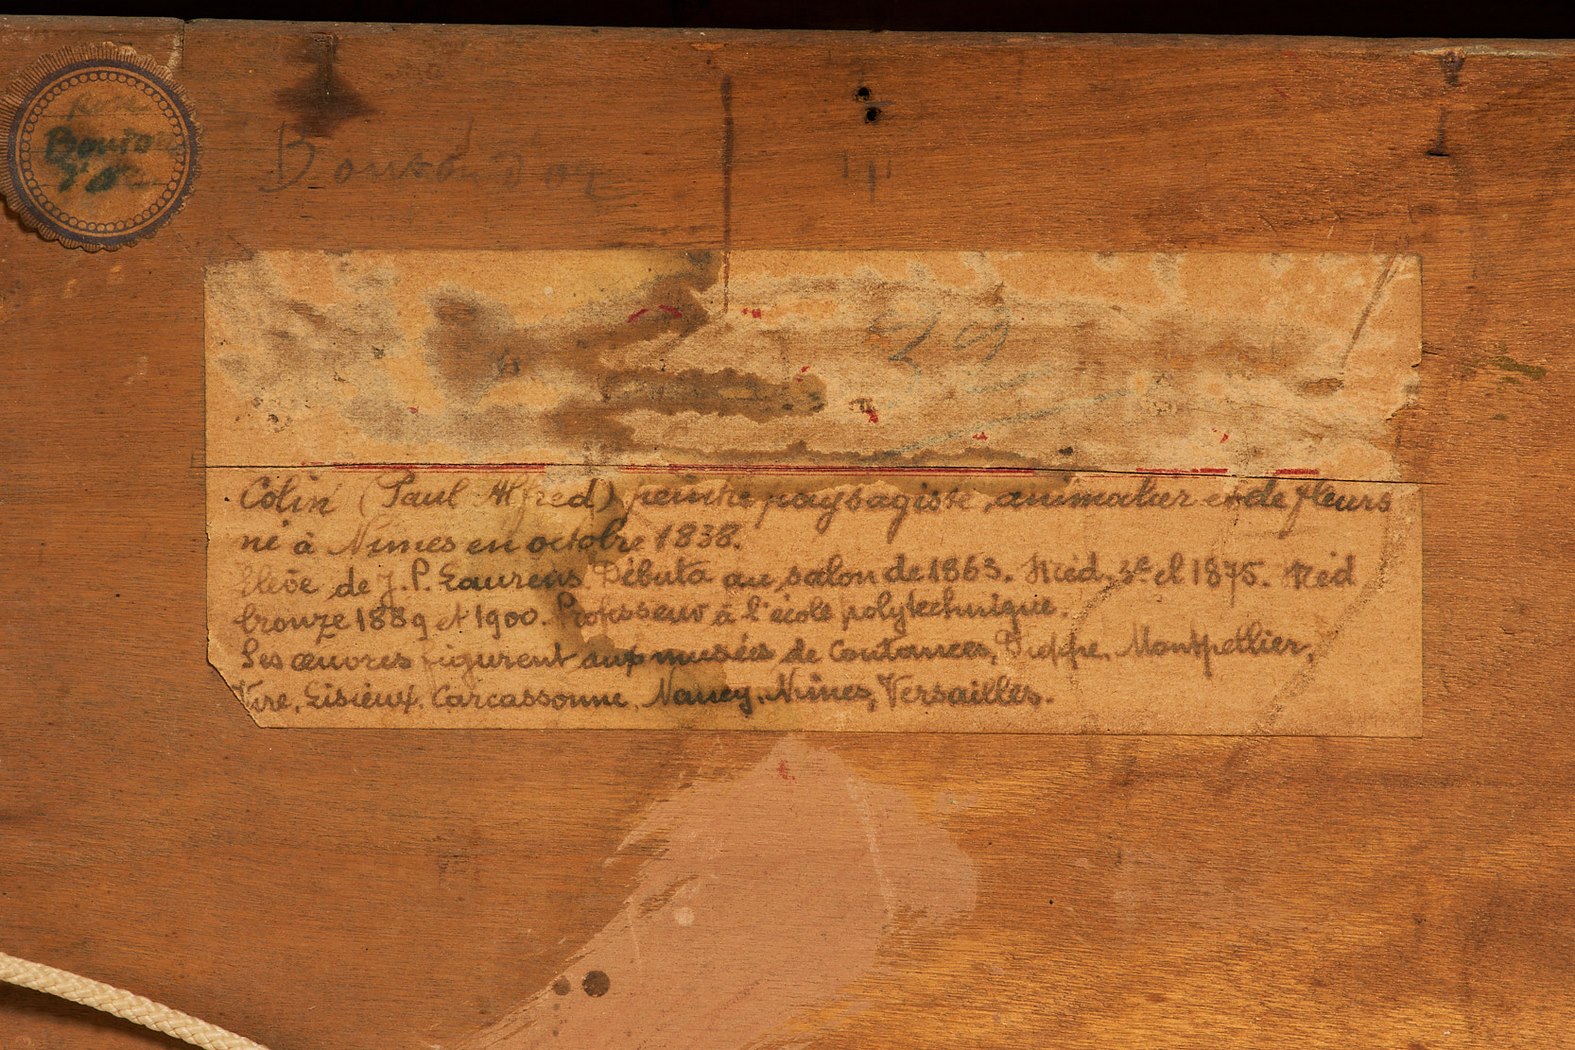 Bouton
d'or
Bouton d'or
29
Colin (Paul Alfred) peintre paysagiste, animalier et de fleurs
né à Nimes en octobre 1838.
Elève de J.P. Laurens. Débuta au salon de 1863. Méd. 3e cl 1875. Méd
bronze 1889 et 1900. Professeur à l'école polytechnique.
Ses œuvres figurent aux musées de Coutances, Dieppe, Montpellier,
Vire, Lisieux, Carcassonne, Nancy, Nimes, Versailles.